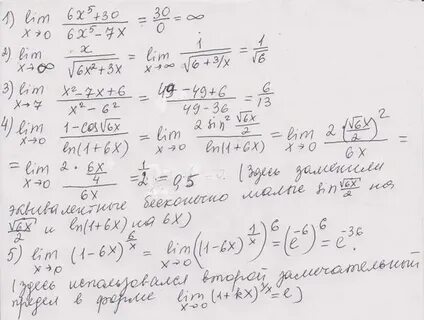 1) lim x→0 (6x⁵+30)/(6x⁵−7x) = 30/0 = ∞
2) lim x→∞ x/√(6x²+3x) = lim x→∞ 1/√(6+3/x) = 1/√6
3) lim x→7 (x²−7x+6)/(x²−6²) = (49−49+6)/(49−36) = 6/13
4) lim x→0 (1−cos√6x)/ln(1+6x) = lim x→0 (2 sin² (√6x/2))/ln(1+6x) = lim x→0 (2(√6x/2)²)/6x =
= lim x→0 (2·6x/4)/6x = 1/2 = 0,5 (Здесь заменили
эквивалентные бесконечно малые sin √6x/2 на
√6x/2 и ln(1+6x) на 6x)
5) lim x→0 (1−6x)^(6/x) = lim x→0 ((1−6x)^(1/x))⁶ = (e⁻⁶)⁶ = e⁻³⁶.
(Здесь использовался второй замечательный
предел в форме lim x→0 (1+kx)^(1/x) = e)